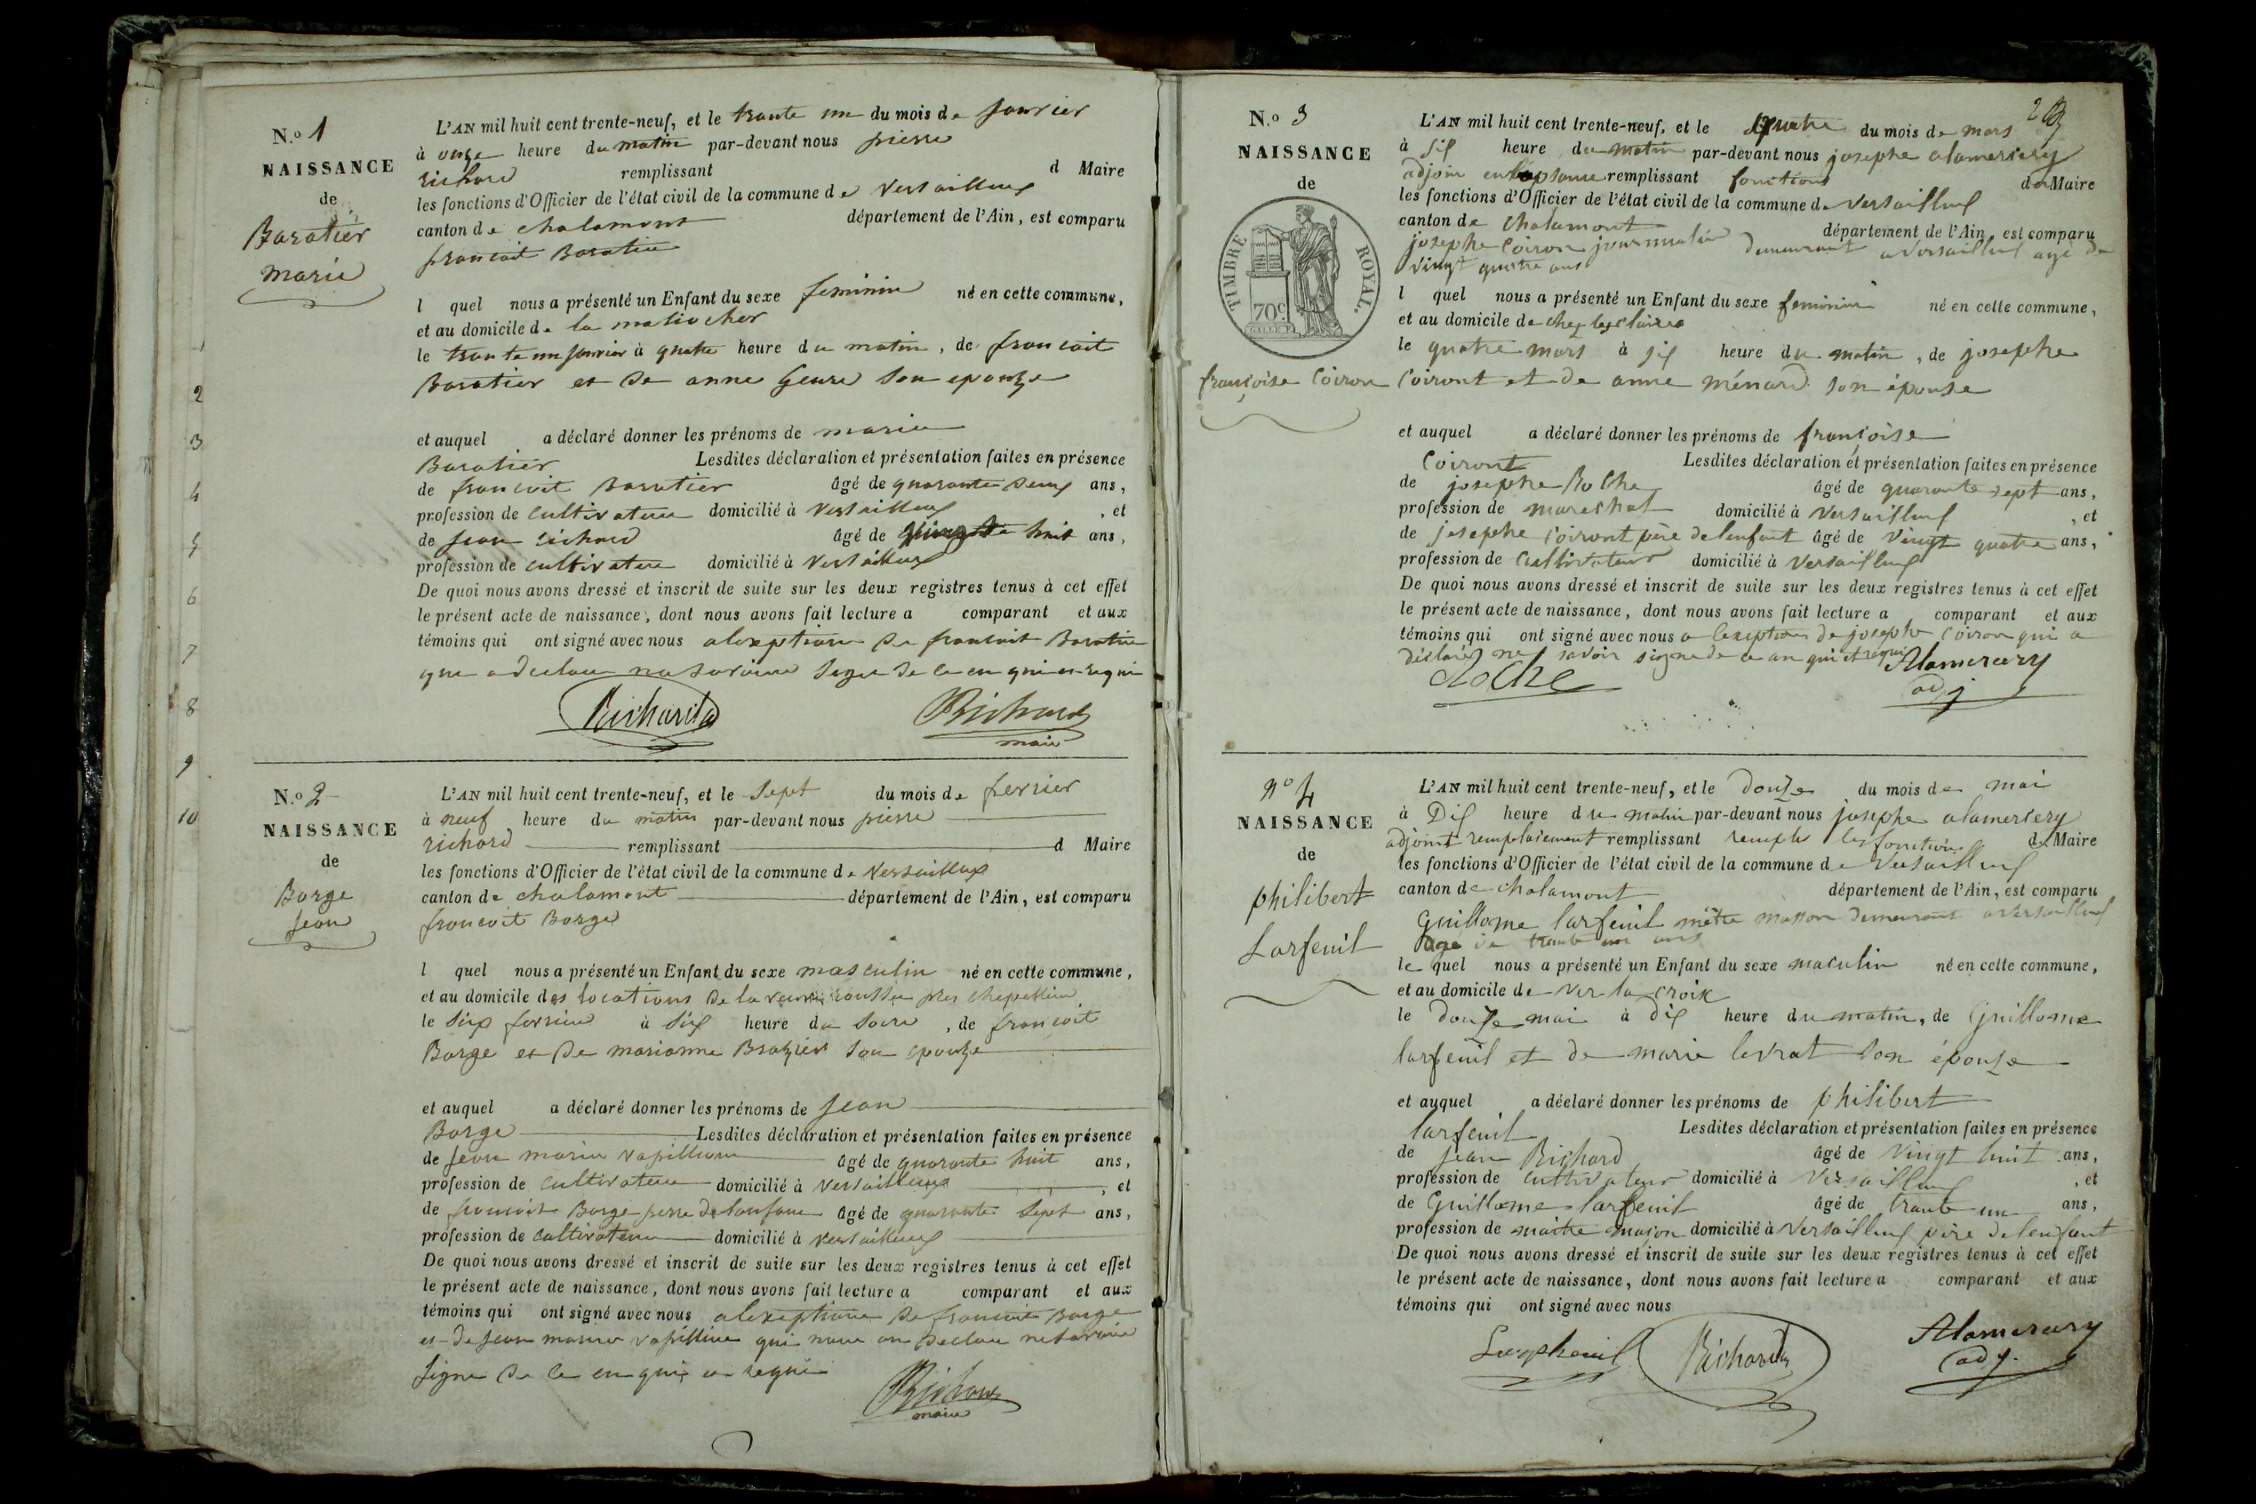 N.o 1
NAISSANCE
de
Baratier
marie
L'AN mil huit cent trente-neuf, et le trante un du mois de janvier
à onze heure du matin par-devant nous pierre
richard remplissant d Maire
les fonctions d'Officier de l'état civil de la commune de Versailleux
canton de chalamont département de l'Ain, est comparu
francoit Baratier
l quel nous a présenté un Enfant du sexe feminin né en cette commune,
et au domicile de la
le trante un janvier à quatre heure du matin, de francoit
Baratier et de anne son epouze
et auquel a déclaré donner les prénoms de marie
Baratier Lesdites déclaration et présentation faites en présence
de francoit Baratier âgé de quarante deux ans,
profession de cultivateur domicilié à Versailleux, et
de jean richard âgé de huit ans,
profession de cultivateur domicilié à Versailleux
De quoi nous avons dressé et inscrit de suite sur les deux registres tenus à cet effet
le présent acte de naissance, dont nous avons fait lecture a comparant et aux
témoins qui ont signé avec nous alexeptione de francoit Baratier
que a declare
Richard
Richard
maire
N.o 2
NAISSANCE
de
Borge
jean
L'AN mil huit cent trente-neuf, et le sept du mois de ferrier
à neuf heure du matin par-devant nous pierre
richard remplissant d Maire
les fonctions d'Officier de l'état civil de la commune de Versailleux
canton de chalamont département de l'Ain, est comparu
francoit Borge
l quel nous a présenté un Enfant du sexe masculin né en cette commune,
et au domicile des locations de la
le six ferrier à six heure du soire, de francoit
Borge et de marianne Brazier son epouze
et auquel a déclaré donner les prénoms de jean
Borge Lesdites déclaration et présentation faites en présence
de jean marie vapillion âgé de quarante huit ans,
profession de cultivateur domicilié à Versailleux, et
de francoit Borge perre de lanfant âgé de quarante sept ans,
profession de cultivateur domicilié à Versailleux
De quoi nous avons dressé et inscrit de suite sur les deux registres tenus à cet effet
le présent acte de naissance, dont nous avons fait lecture a comparant et aux
témoins qui ont signé avec nous alexeptione de francoit Borge
et de jean marie qui nous on declare
signe de ce en qui
Richard
maire
2
3
4
5
6
7
8
9
10
N.o 3
NAISSANCE
de
TIMBRE ROYAL.
70c
françoise Coiron
L'AN mil huit cent trente-neuf, et le quatre du mois de mars
à six heure du matin par-devant nous josephe alamercery
adjoin remplissant fonctions de Maire
les fonctions d'Officier de l'état civil de la commune de Versailleux
canton de Chalamont département de l'Ain, est comparu
josephe Coiron journalié demeurant a Versailleux agé de
vingt quatre ans
l quel nous a présenté un Enfant du sexe feminin né en cette commune,
et au domicile de chez
le quatre mars à six heure du matin, de josephe
Coiront et de anne ménard son épouse
et auquel a déclaré donner les prénoms de françoise
Coiront Lesdites déclaration et présentation faites en présence
de josephe Roche âgé de quarante sept ans,
profession de marechal domicilié à Versailleux, et
de josephe Coiront père de lenfant âgé de vingt quatre ans,
profession de Cultivateur domicilié à Versailleux
De quoi nous avons dressé et inscrit de suite sur les deux registres tenus à cet effet
le présent acte de naissance, dont nous avons fait lecture a comparant et aux
témoins qui ont signé avec nous a lexeption de josephe Coiron qui a
déclaré ne savoir signe de ce an qui et requi
Roche
Alamercery
adj
N.o 4
NAISSANCE
de
philibert
Larfeuil
L'AN mil huit cent trente-neuf, et le douze du mois de mai
à dix heure du matin par-devant nous josephe alamercery
adjoint remplacement remplissant remplir les fonctions de Maire
les fonctions d'Officier de l'état civil de la commune de Versailleux
canton de chalamont département de l'Ain, est comparu
Guillome larfeuil mètre masson demeurant a Versailleux
agé de trante un ans
le quel nous a présenté un Enfant du sexe maculin né en cette commune,
et au domicile de ver la croix
le douze mai à dix heure du matin, de Guillome
larfeuil et de marie levrat son épouze
et auquel a déclaré donner les prénoms de philibert
larfeuil Lesdites déclaration et présentation faites en présence
de jean Richard âgé de vingt huit ans,
profession de cultivateur domicilié à Versailleux, et
de Guillome larfeuil âgé de trante un ans,
profession de maitre mason domicilié à Versailleux père de lenfant
De quoi nous avons dressé et inscrit de suite sur les deux registres tenus à cet effet
le présent acte de naissance, dont nous avons fait lecture a comparant et aux
témoins qui ont signé avec nous
Richard
Alamercery
adj.